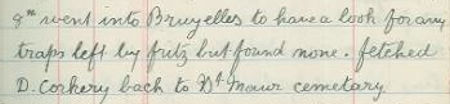 8th went into Bruyelles to have a look for any
traps left by fritz but found none. fetched
D. Corkery back to St Maur cemetary